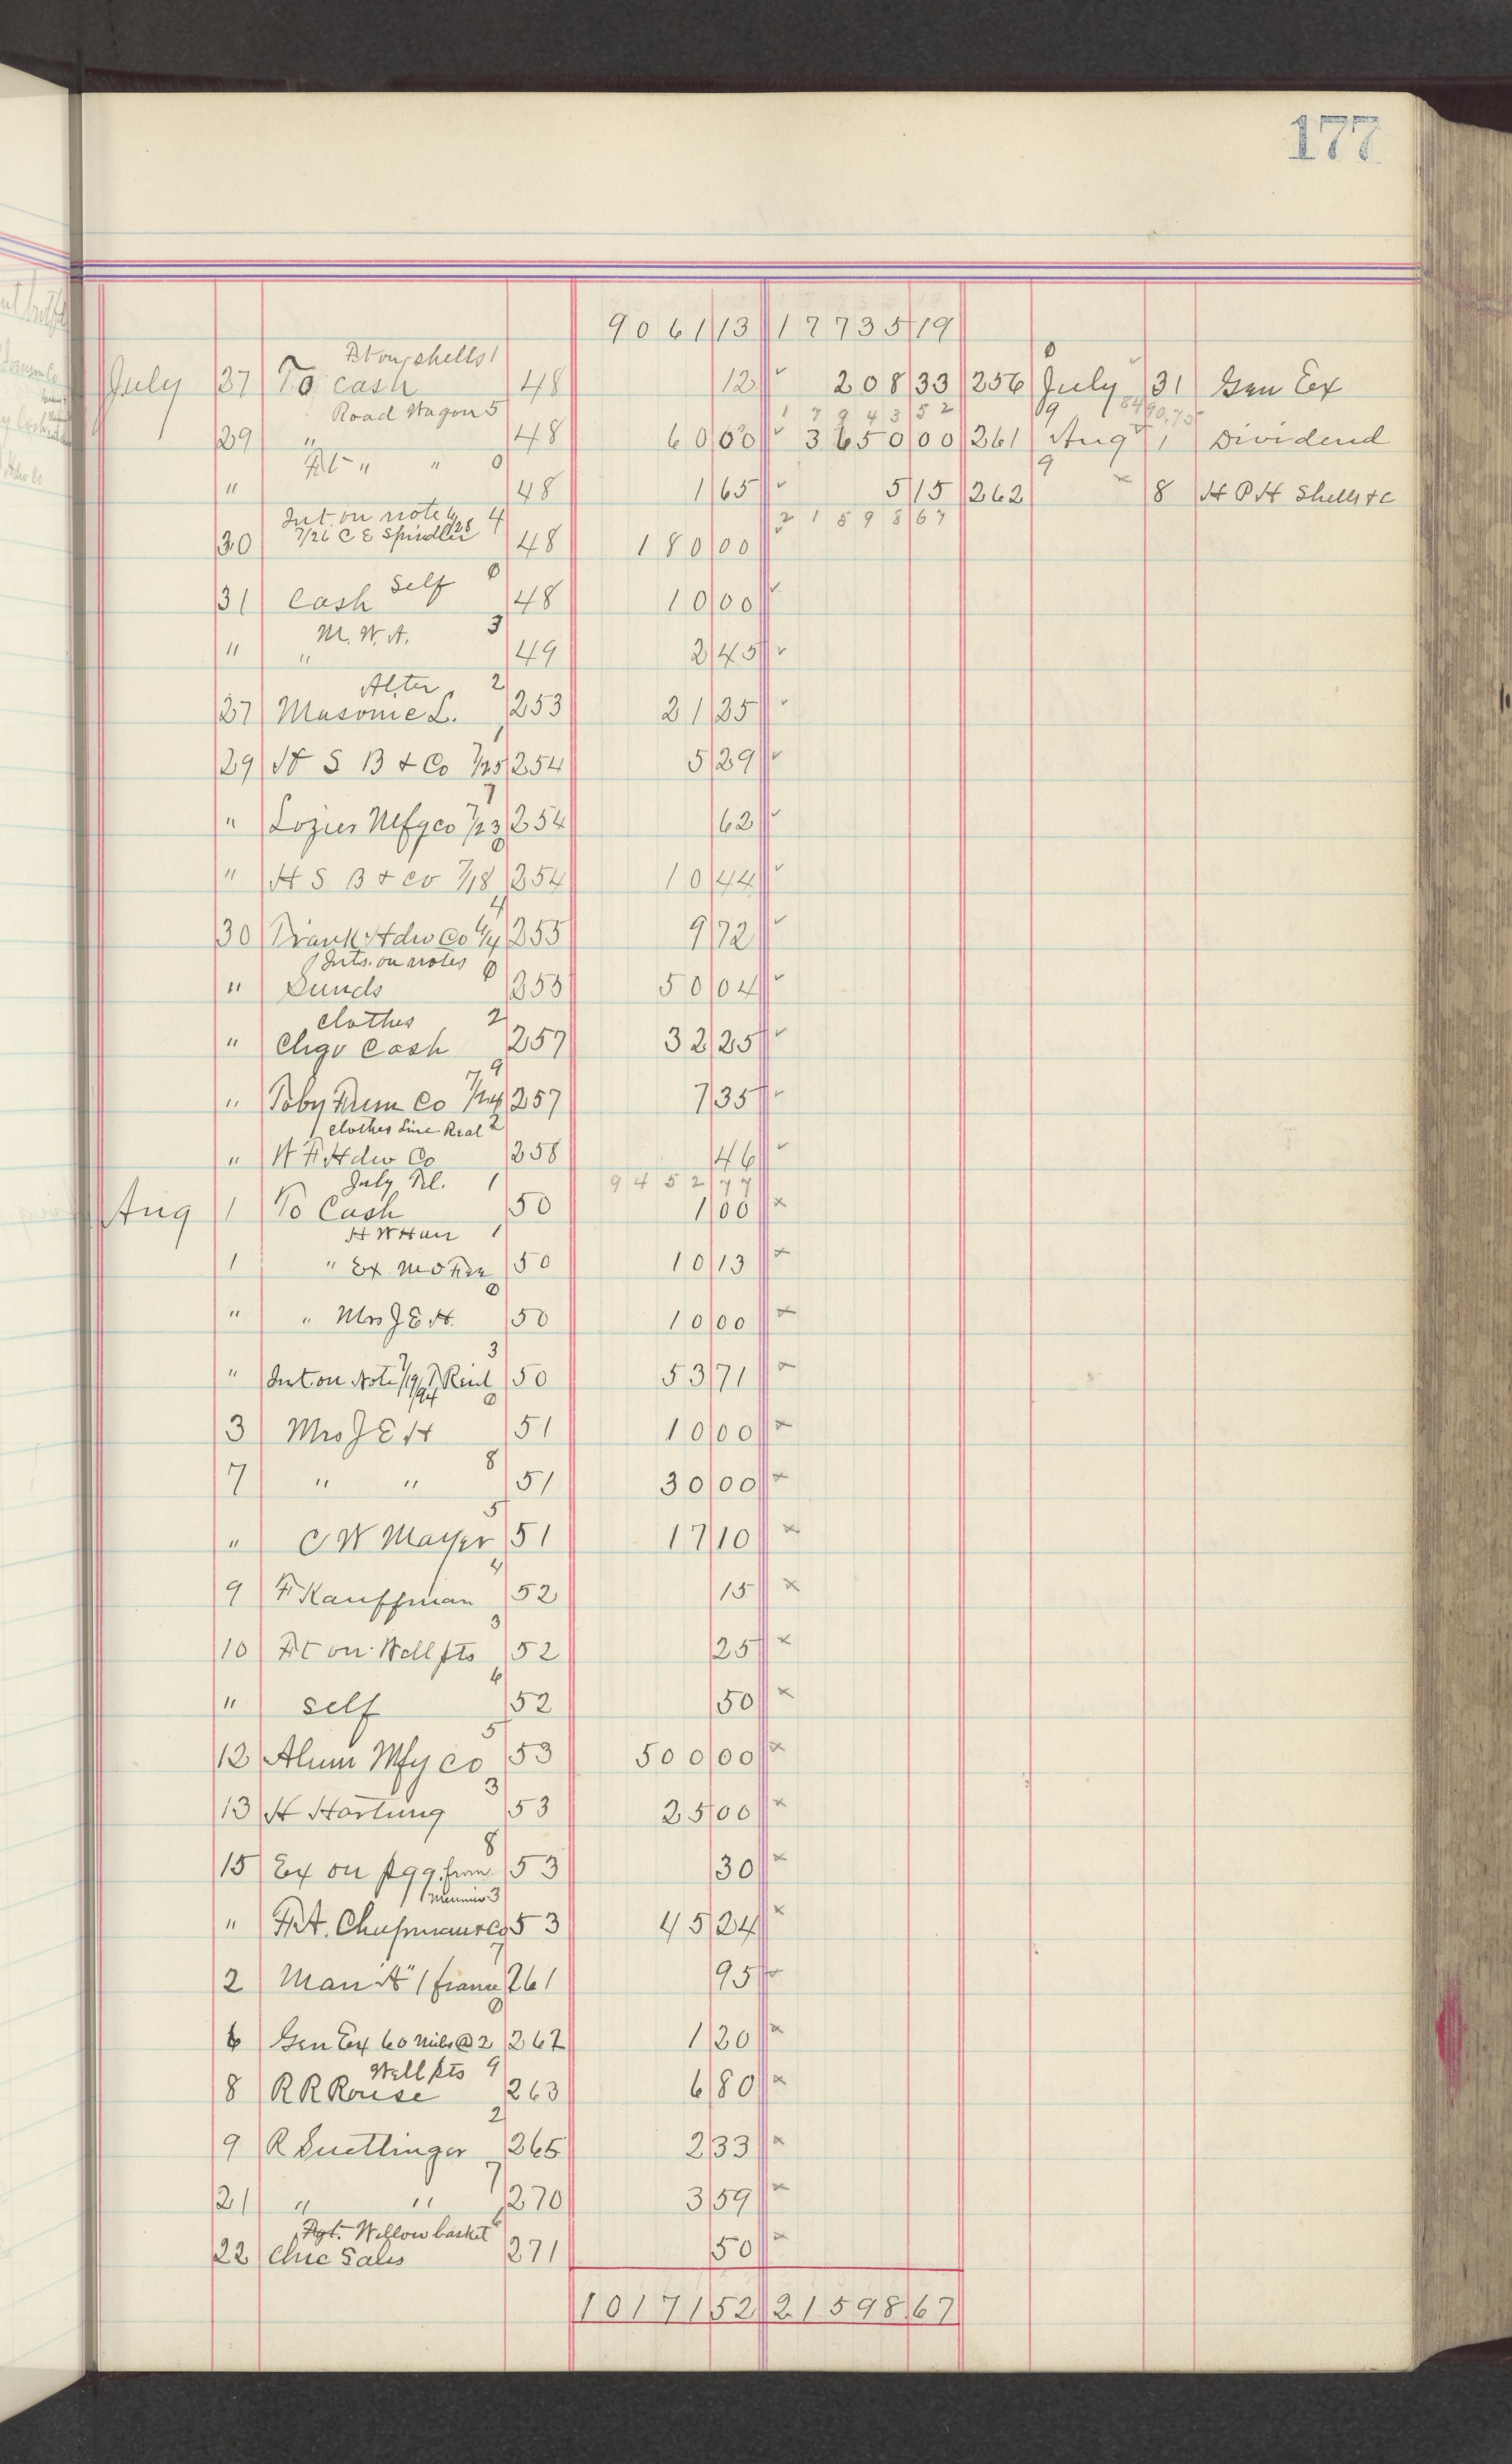 177
9061 13 17735 19
Ft on shells 1
July 27 To cash 48 12 ✓ 208 33 256 July 31 Gen Ex
Road Wagon 5 17943 52 8490.75
29 " 48 60 00 ✓ 3650 00 261 Aug 1 Dividend
Ft " " 0 9
" 48 1 65 ✓ 5 15 262 × 8 H P H Shells &c
Int. on note 4 21598 67
30 7/26 C E Spindler 48 180 00 ✓
31 Cash Self 0 48 10 00 ✓
M. W. A. 3
" " 49 2 45 ✓
Alter 2
27 Masonic L. 253 21 25 ✓
29 H S B & Co 7/25 254 5 29 ✓
7
" Lozier Mfg co 7/23 254 62 ✓
" H S B & Co 7/18 254 10 44 ✓
4
30 Frank Hdw Co 255 9 72 ✓
Ints. on notes 0
" Sunds 255 50 04 ✓
Clothes 2
" Chgo Cash 257 32 25 ✓
9
" Toby Furn Co 7/24 257 7 35 ✓
Clothes Line Real 2
" W F Hdw Co 258 46 ✓
July Tel. 1 9452 77
Aug 1 To Cash 50 1 00 ×
H W Harr 1
1 " Ex 50 10 13 ×
0
" " Mrs J E H. 50 10 00 ×
3
" Int. on Note 7/19/94 Reid 50 53 71 ×
0
3 Mrs J E H 51 10 00 ×
8
7 " " 51 30 00 ×
5
" C W Mayer 51 17 10 ×
4
9 F Kauffman 52 15 ×
3
10 Ft on Well pts 52 25 ×
6
" self 52 50 ×
5
12 Alum Mfg co 53 500 00 ×
3
13 H Hartung 53 25 00 ×
8
15 Ex on pgg. from 53 30 ×
3
" F.A. Chapman & Co 53 45 24 ×
7
2 Man "A" 1 frame 261 95 ×
0
6 Gen Ex 60 miles @ 2 262 1 20 ×
Well pts 9
8 R R Rouse 263 6 80 ×
2
9 R Suettinger 265 2 33 ×
7
21 " " 270 3 59 ×
Fgt. Willow basket 6
22 Chic Sales 271 50 ×
10171 52 21598 67